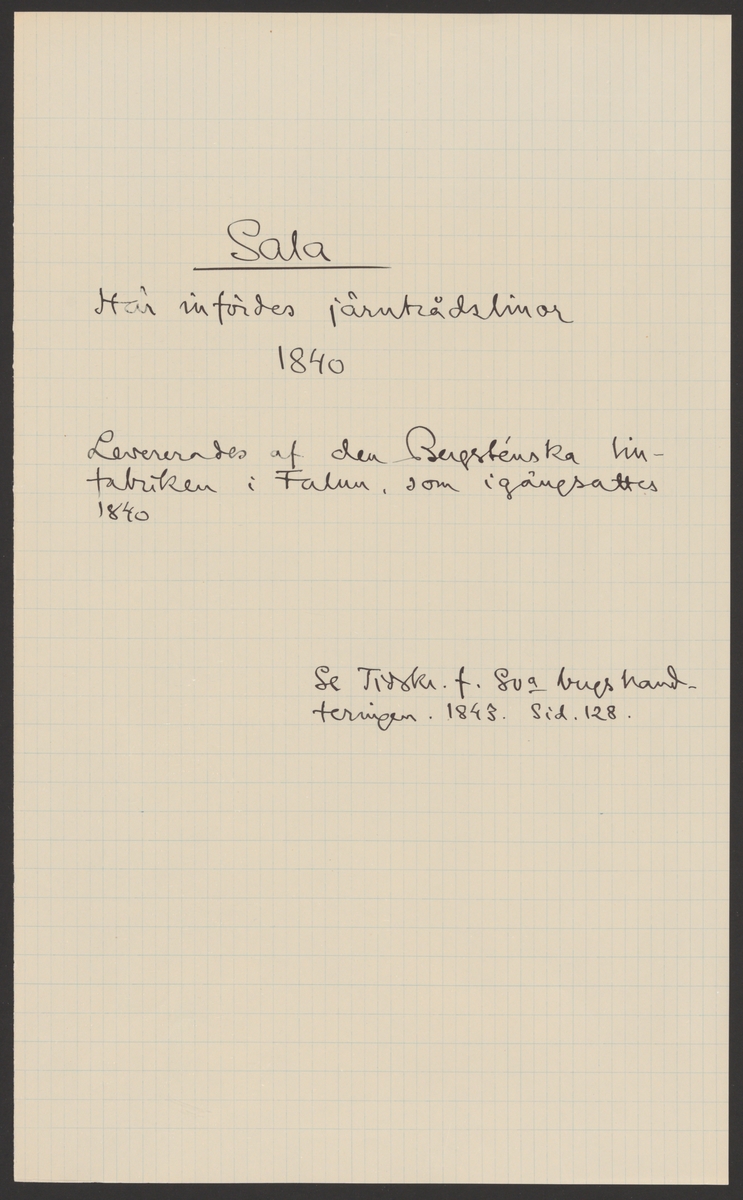 Sala
Här infördes järntrådslinor
1840
Levererades af den Bergsténska lin-
fabriken i Falun, som igångsattes
1840
Se Tidskr. f. Sva bergshand-
teringen. 1843. Sid. 128.